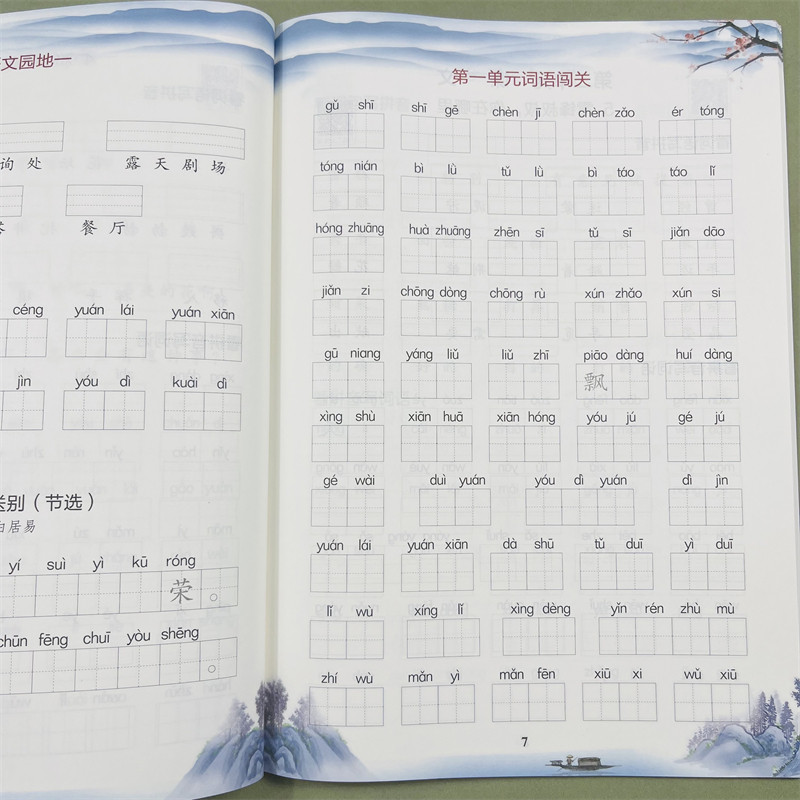 文园地一
询处 露天剧场
餐厅
céng yuán lái yuán xiān
jìn yóu dì kuài dì
别（节选）
白居易
yí suì yì kū róng
荣。
chūn fēng chuī yòu shēng
。
第一单元词语闯关
gǔ shī shī gē chèn jī chèn zǎo ér tóng
tóng nián bì lǜ tǔ lù bì táo táo lǐ
hóng zhuāng huà zhuāng zhēn sī tǔ sī jiǎn dāo
jiǎn zi chōng dòng chōng rù xún zhǎo xún si
gū niang yáng liǔ liǔ zhī piāo dàng huí dàng
飘
xìng shù xiān huā xiān hóng yóu jú gé jú
gé wài duì yuán yóu dì yuán dì jìn
yuán lái yuán xiān dà shū tǔ duī yì duī
lǐ wù xíng lǐ xìng dèng yǐn rén zhù mù
zhí wù mǎn yì mǎn fēn xiū xi wǔ xiū
7